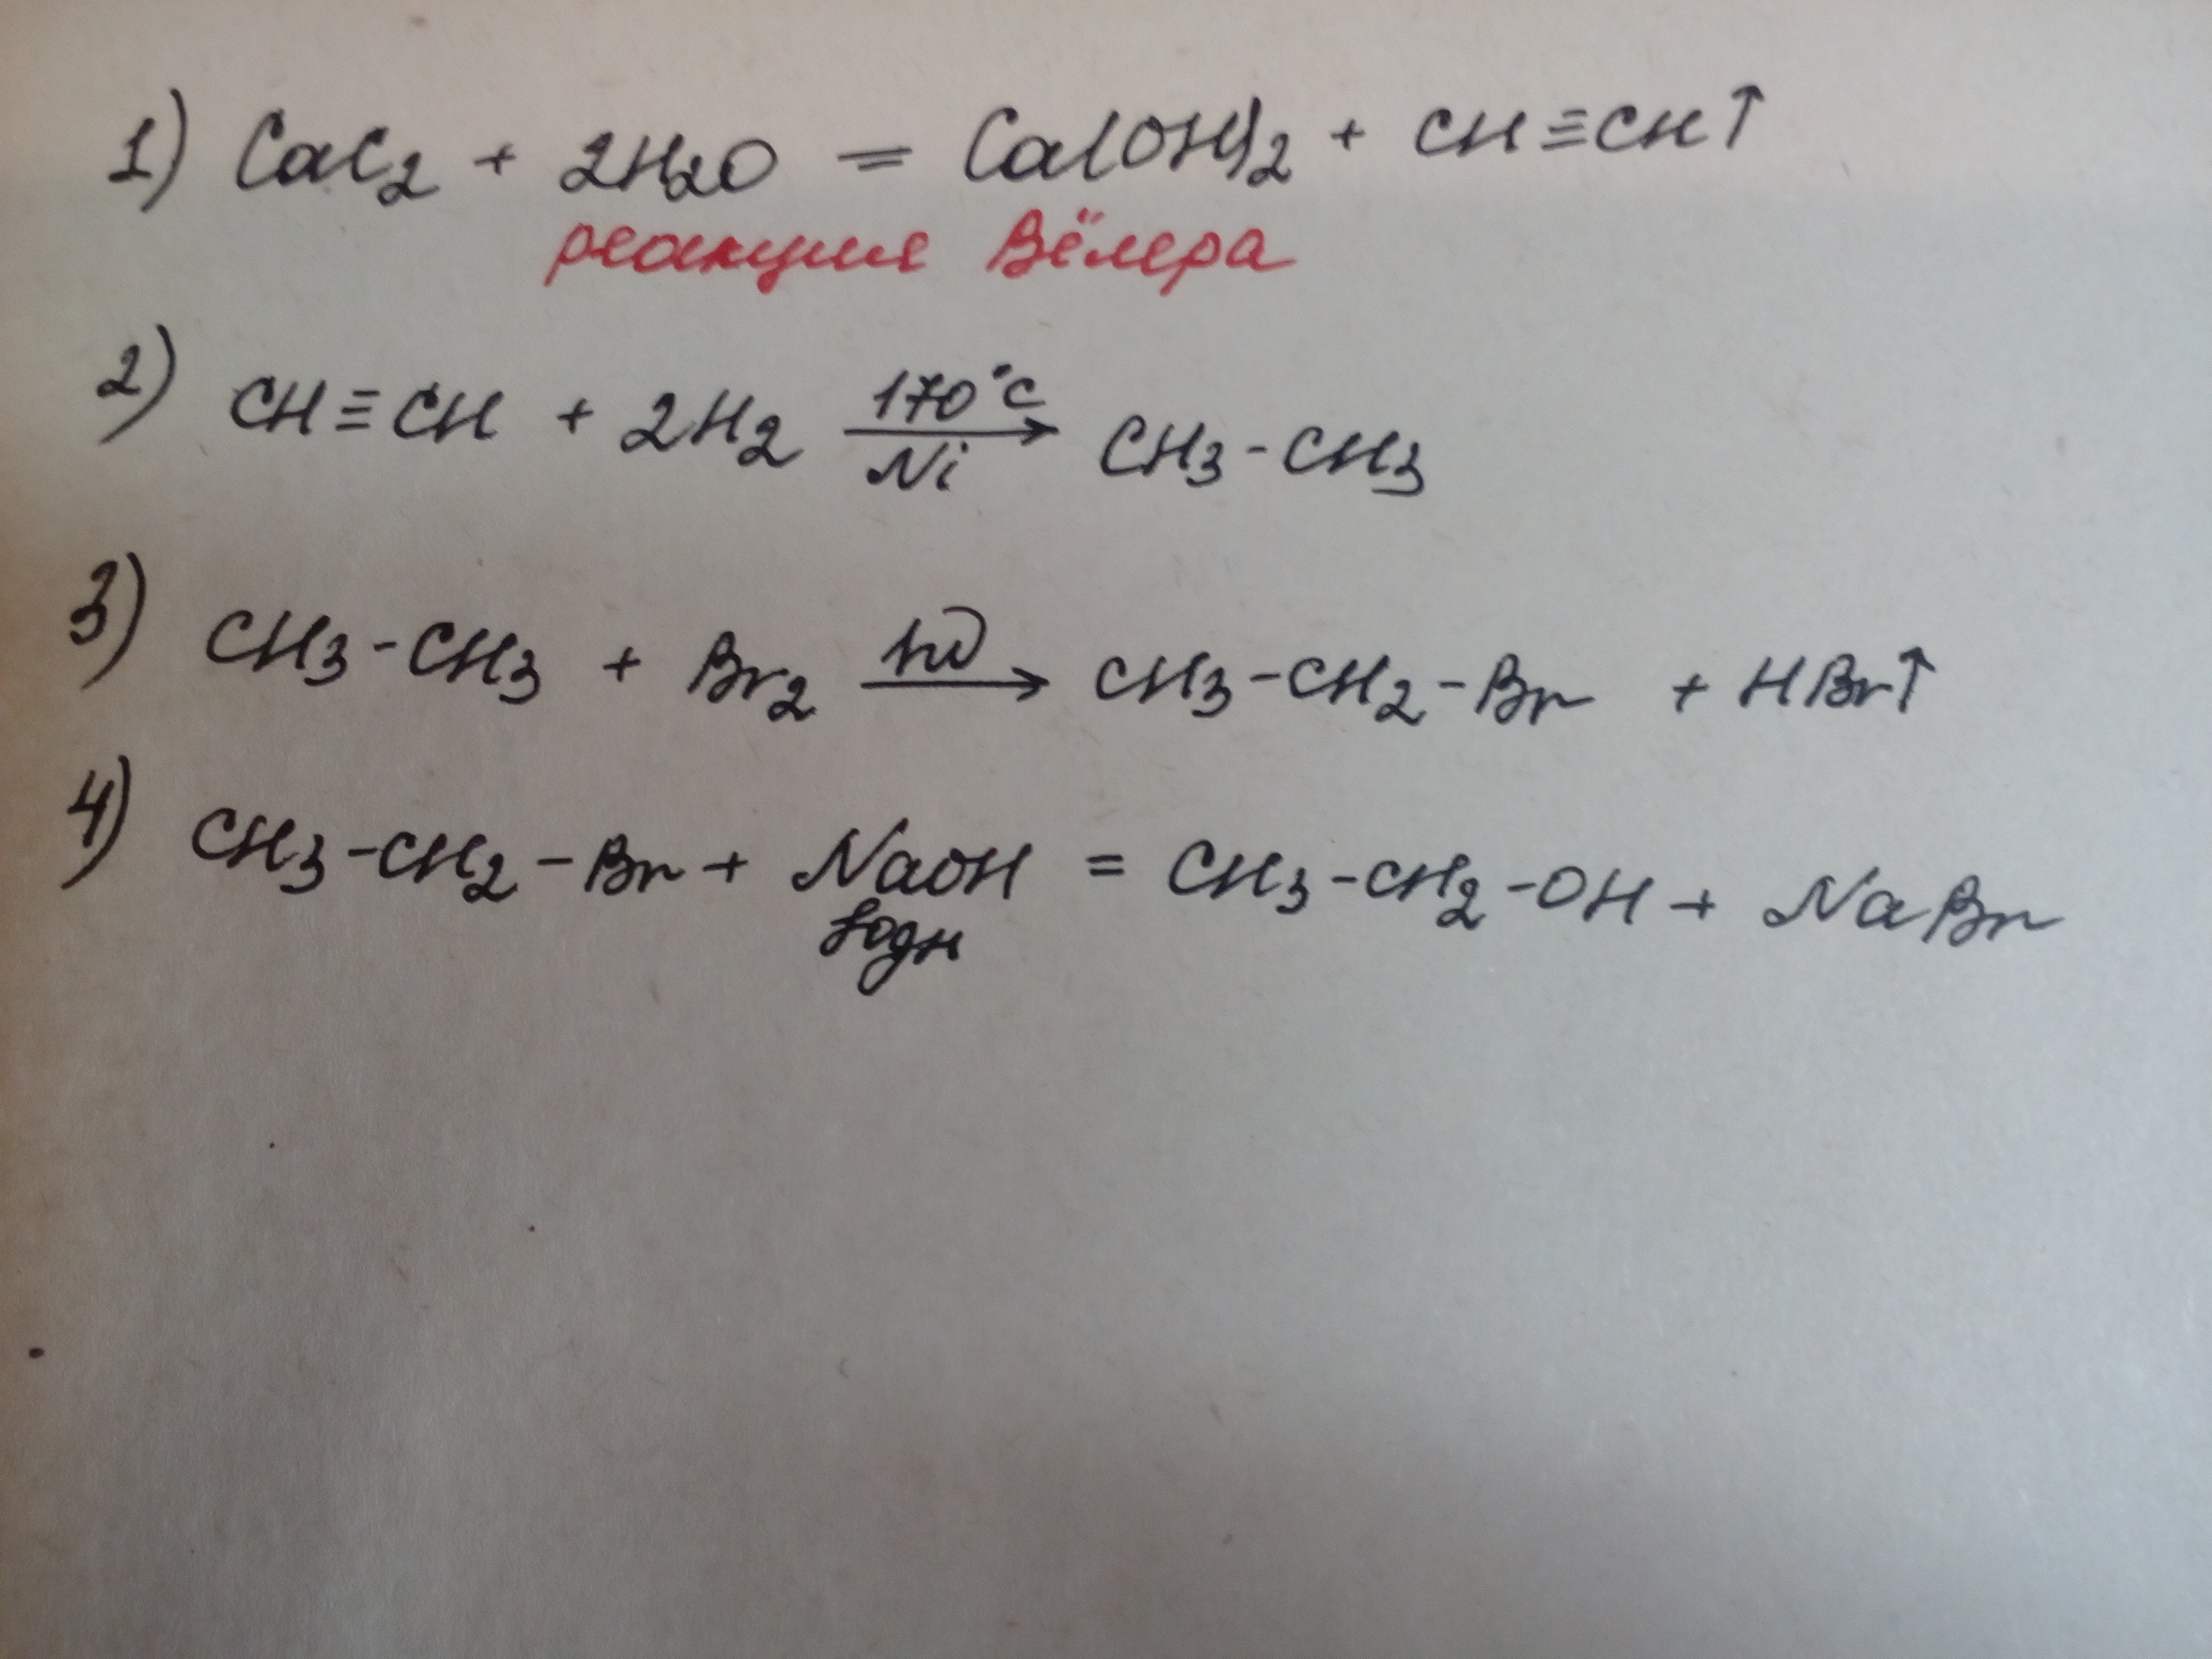 1) CaC2 + 2H2O = Ca(OH)2 + CH≡CH↑
реакция Вёлера
2) CH≡CH + 2H2 170°C Ni → CH3-CH3
3) CH3-CH3 + Br2 hν → CH3-CH2-Br + HBr↑
4) CH3-CH2-Br + NaOH = CH3-CH2-OH + NaBr
водн